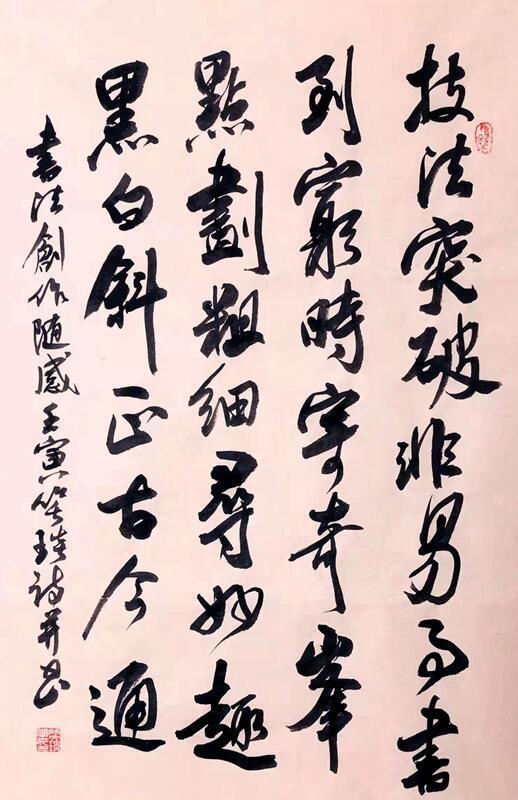 技法突破非易事書
到窮時寄奇峯
點劃粗細尋妙趣
黑白斜正古今通
書法創作随感壬寅詩并書